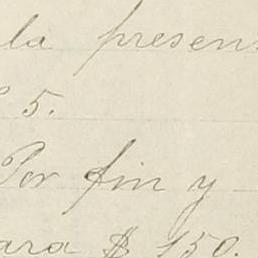 la presen
5.
Por fin y
ara $ 150.